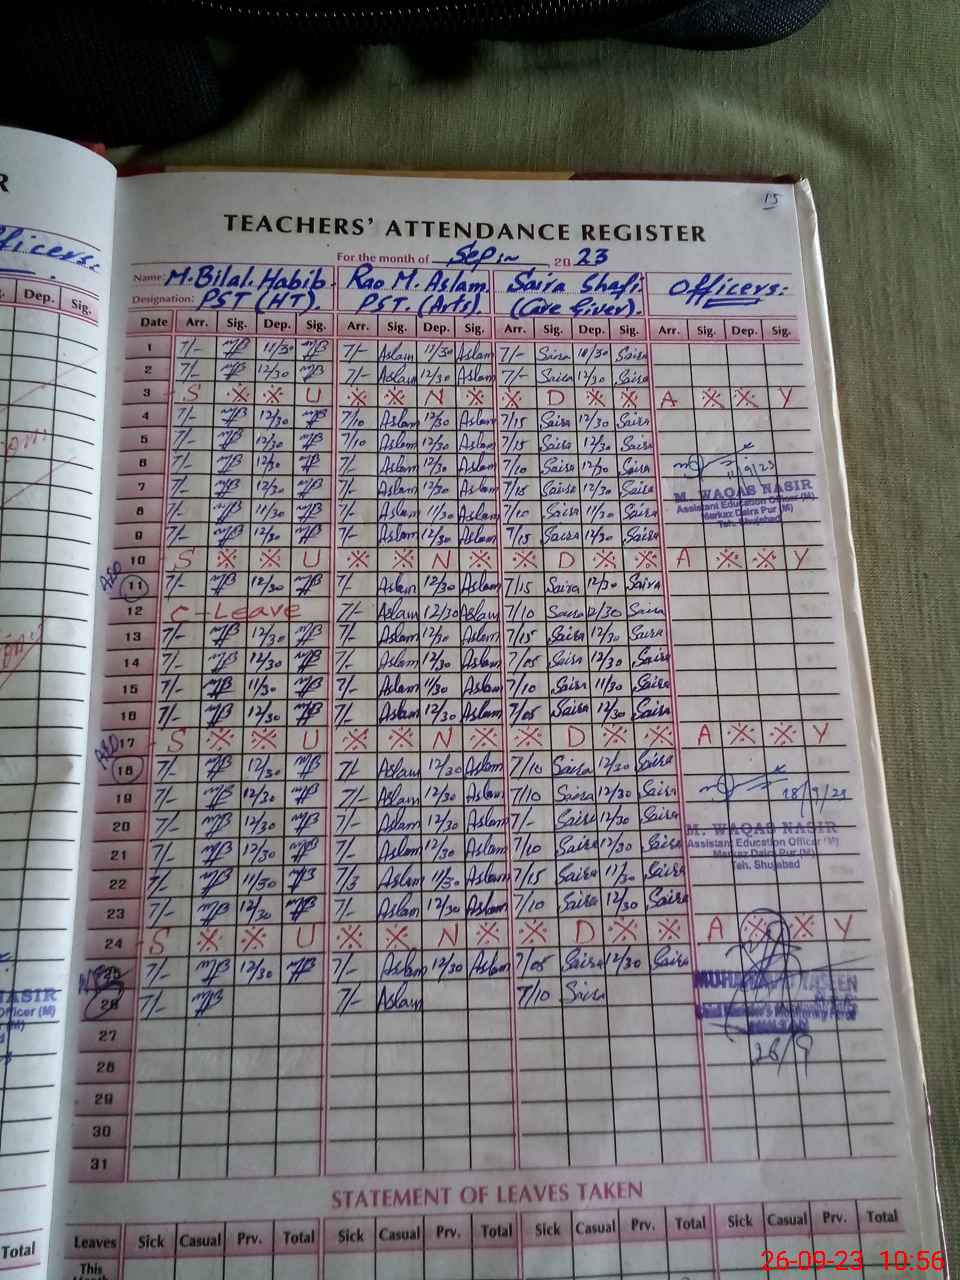 15
TEACHERS' ATTENDANCE REGISTER
For the month of Sep:~ 2023
Name: M.Bilal.Habib. Rao M. Aslam. Saira Shafi. Officers:
Designation: PST (HT). PST. (Arts). (Care Giver).
Date Arr. Sig. Dep. Sig. Arr. Sig. Dep. Sig. Arr. Sig. Dep. Sig. Arr. Sig. Dep. Sig.
1 7/- 11/30 7/- Aslam 11/30 Aslam 7/- Saira Saira
2 7/- 12/30 7/- Aslam 12/30 Aslam 7/- Saira 12/30 Saira
3 S ※ ※ U ※ ※ N ※ ※ D ※ ※ A ※ ※ Y
4 7/- 12/30 7/10 Aslam 12/30 Aslam 7/15 Saira 12/30 Saira
5 7/- 12/30 7/10 Aslam 12/30 Aslam 7/15 Saira 12/30 Saira
6 7/- 12/30 7/- Aslam 12/30 Aslam 7/10 Saira 12/30 Saira
7 7/- 12/30 7/- Aslam 12/30 Aslam 7/15 Saira 12/30 Saira
8 7/- 11/30 7/- Aslam 11/30 Aslam 7/10 Saira 11/30 Saira
9 7/- 12/30 7/- Aslam 12/30 Aslam 7/15 Saira 12/30 Saira
11/9/23
M. WAQAS NASIR
Assistant Education Officer (M)
Markaz Daira Pur (M)
Teh. Shujabad
10 S ※ ※ U ※ ※ N ※ ※ D ※ ※ A ※ ※ Y
11 7/- 12/30 7/- Aslam 12/30 Aslam 7/15 Saira 12/30 Saira
12 C-Leave 7/- Aslam 12/30 Aslam 7/10 Saira 12/30 Saira
13 7/- 12/30 7/- Aslam 12/30 Aslam 7/15 Saira 12/30 Saira
14 7/- 12/30 7/- Aslam 12/30 Aslam 7/05 Saira 12/30 Saira
15 7/- 11/30 7/- Aslam 11/30 Aslam 7/10 Saira 11/30 Saira
16 7/- 12/30 7/- Aslam 12/30 Aslam 7/05 Saira 12/30 Saira
17 S ※ ※ U ※ ※ N ※ ※ D ※ ※ A ※ ※ Y
18 7/- 12/30 7/- Aslam 12/30 Aslam 7/10 Saira 12/30 Saira
19 7/- 12/30 7/- Aslam 12/30 Aslam 7/10 Saira 12/30 Saira 18/9/23
20 7/- 12/30 7/- Aslam 12/30 Aslam 7/- Saira 12/30 Saira
21 7/- 12/30 7/- Aslam 12/30 Aslam 7/10 Saira 12/30 Saira
M. WAQAS NASIR
Assistant Education Officer (M)
Markaz Daira Pur (M)
Teh. Shujabad
22 7/- 11/30 7/3 Aslam 11/30 Aslam 7/15 Saira 11/30 Saira
23 7/- 12/30 7/- Aslam 12/30 Aslam 7/10 Saira 12/30 Saira
24 S ※ ※ U ※ ※ N ※ ※ D ※ ※ A ※ ※ Y
25 7/- 12/30 7/- Aslam 12/30 Aslam 7/05 Saira 12/30 Saira
26 7/- 7/- Aslam 7/10 Saira
26/9
27
28
29
30
31
STATEMENT OF LEAVES TAKEN
Leaves Sick Casual Prv. Total Sick Casual Prv. Total Sick Casual Prv. Total Sick Casual Prv. Total
This
Total
26-09-23 10:56